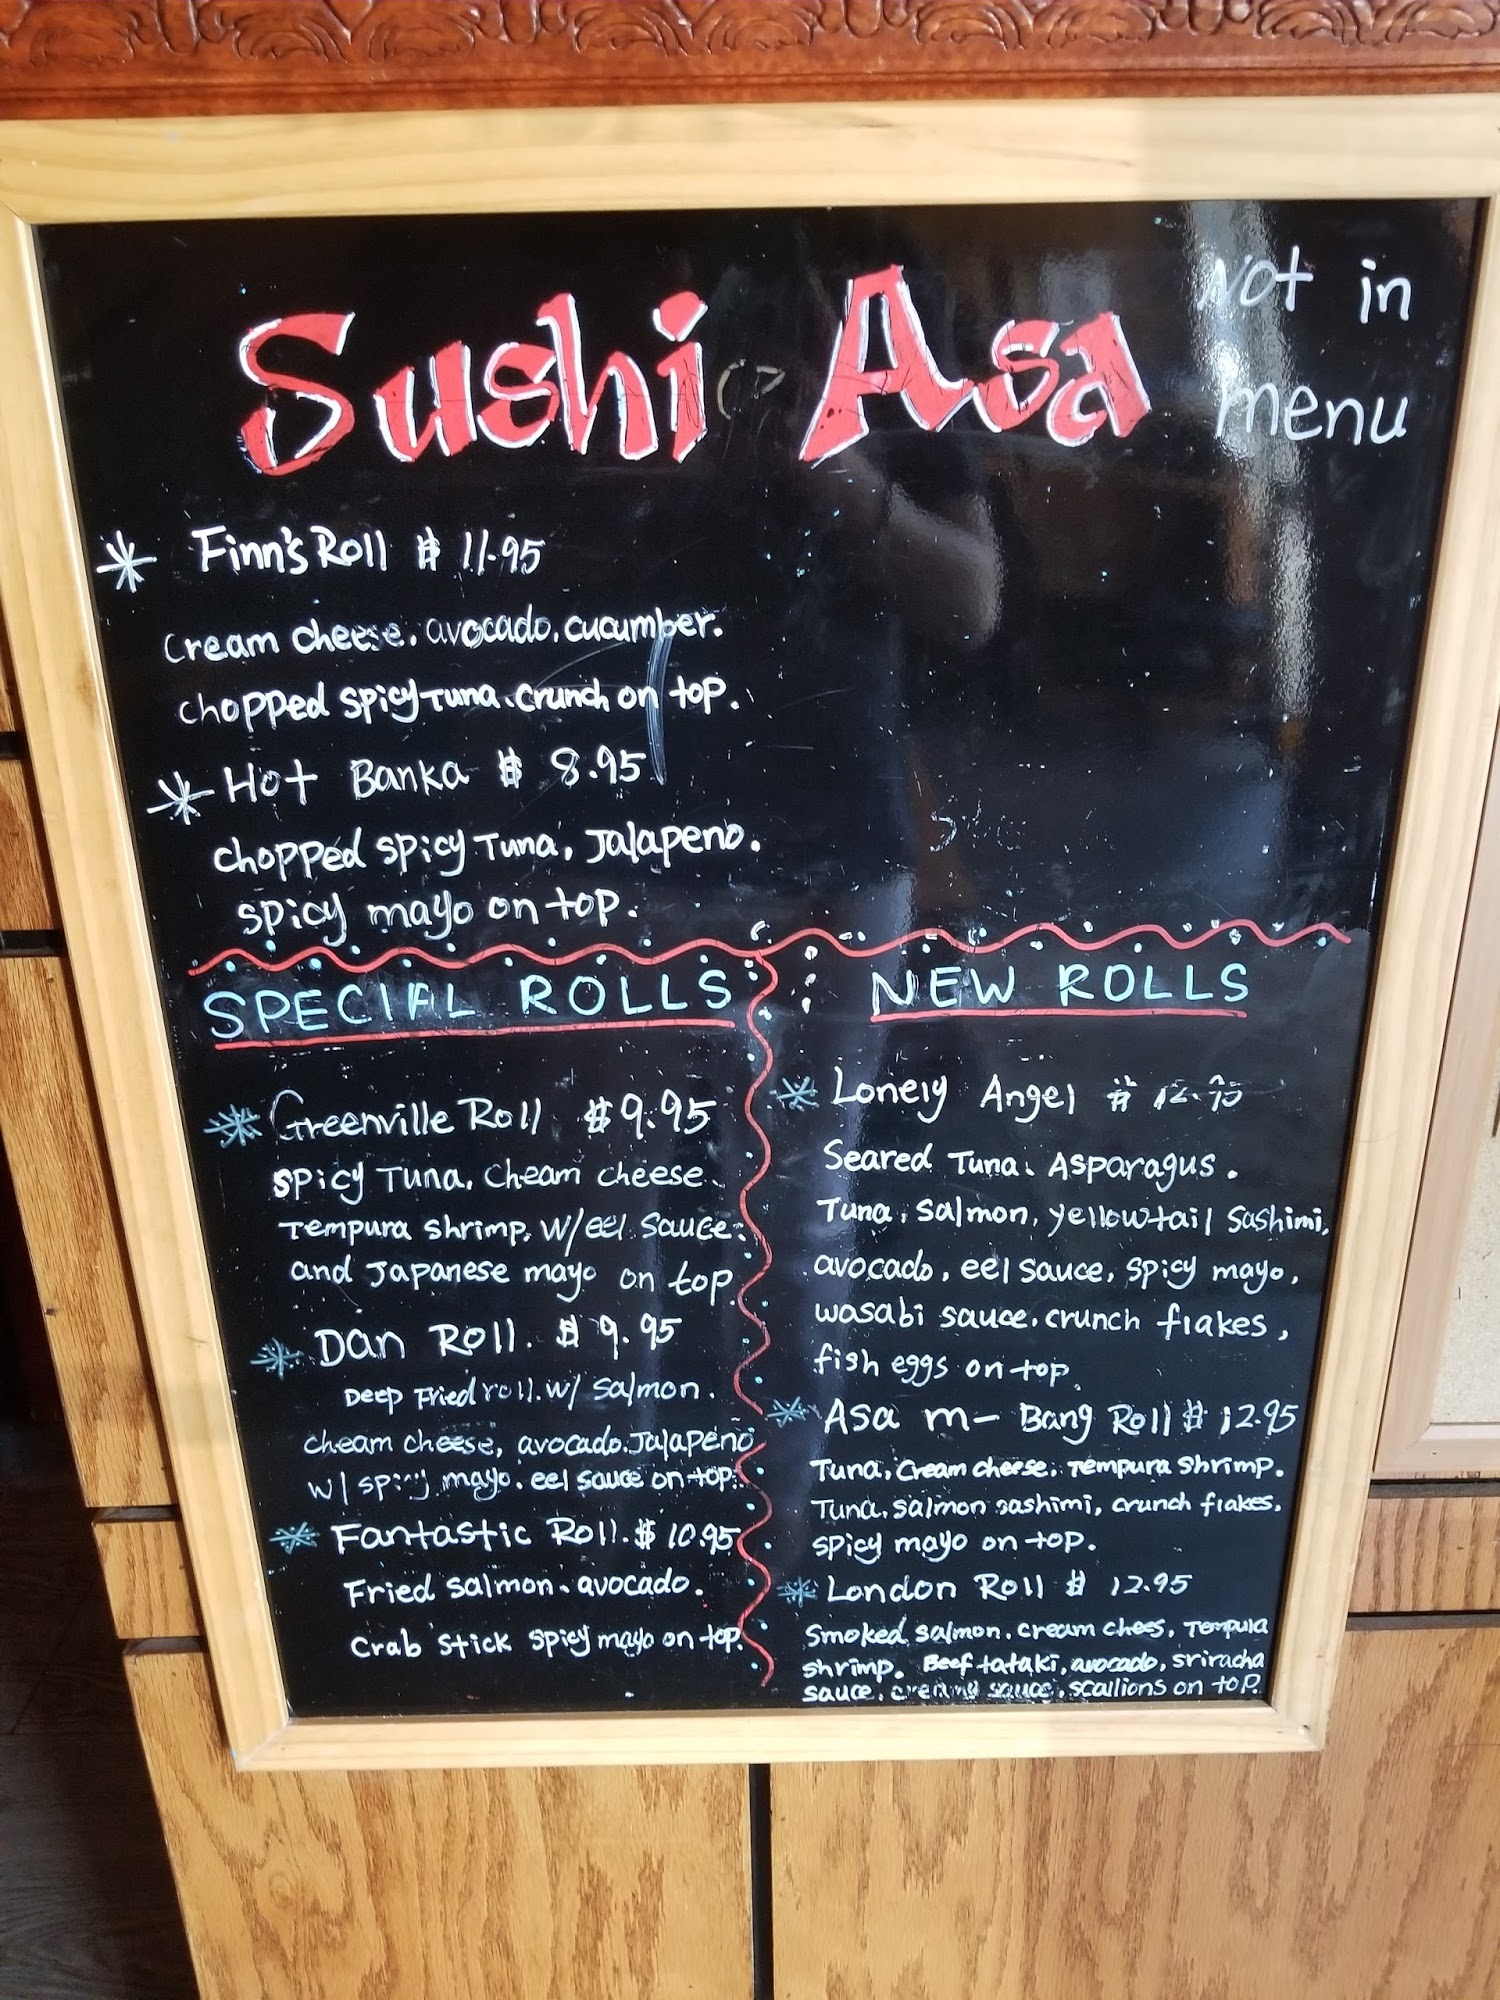 Sushi Asa
not in
menu
Finn's Roll $ 11.95
cream cheese, avocado, cucumber.
chopped spicy Tuna, crunch on top.
Hot Banka $ 8.95
chopped spicy Tuna, Jalapeno.
spicy mayo on top.
SPECIAL ROLLS
Greenville Roll $9.95
spicy Tuna, cheam cheese,
Tempura shrimp, w/eel sauce.
and Japanese mayo on top.
Dan Roll. $ 9.95
Deep Fried roll. w/ salmon.
cheam cheese, avocado. Jalapeno
w/ spicy mayo. eel sauce on top.
Fantastic Roll. $ 10.95
Fried salmon, avocado.
Crab stick spicy mayo on top.
NEW ROLLS
Lonely Angel $ 12.95
Seared Tuna, Asparagus.
Tuna, salmon, yellowtail sashimi,
avocado, eel sauce, spicy mayo,
wasabi sauce, crunch flakes,
fish eggs on top.
Asa m- Bang Roll $ 12.95
Tuna, cream cheese, Tempura shrimp.
Tuna, salmon sashimi, crunch flakes,
spicy mayo on top.
London Roll $ 12.95
Smoked salmon, cream chees, Tempura
shrimp. Beef tataki, avocado, sriracha
sauce, creamy sauce, scallions on top.